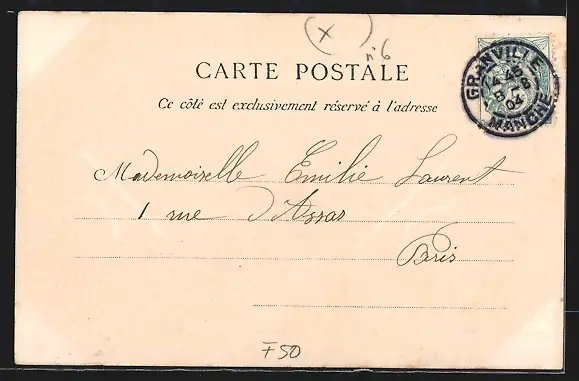 (x)
n°6
CARTE POSTALE
Ce côté est exclusivement réservé à l'adresse
GRANVILLE
MANCHE
Mademoiselle Emilie Laurent
1 rue d'Assas
Paris
F50